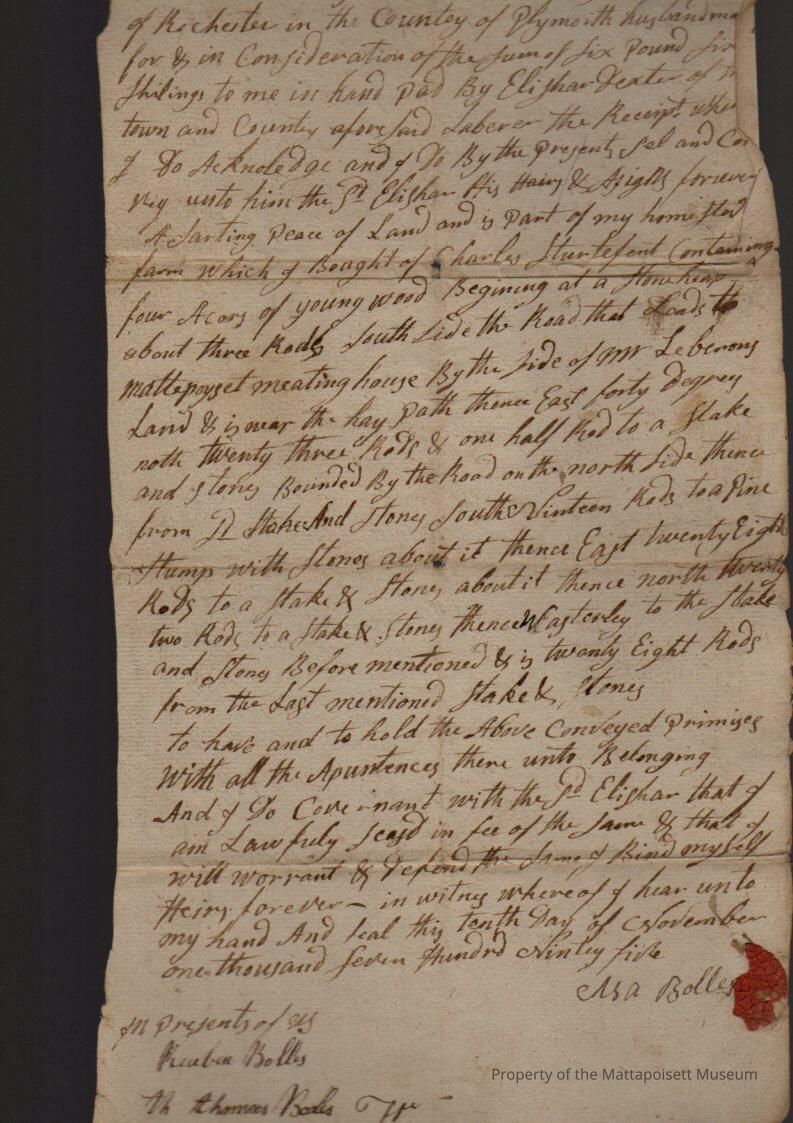 of Rochester in the Countey of Plymoth husbandma
for & in Consideration of the sum of six Pound six
shilings to me in hand pad By Elishar Dexter of
town and Countey aforesaid Laberer the Receipt
I Do Acknoledge and I Do By the Presents sel and Con
vey unto him the sd Elishar His Hairs & Asigns forever
A sarting Peace of Land and is Part of my homested
farm which I Boaght of Charles Sturtefent Containing
four Acors of young wood Begining at a stone heap
about three Rods south side the Road that Leads to
mattepoyset meating house By the side of mr Leberons
Land & is near the hay Path thence East forty Degreys
noth twenty three Rods & one half Rod to a stake
and stones Bounded By the Road on the north side thence
from sd stake And stones south Ninteen Rods to a Pine
stump with stones about it thence East twenty Eight
Rods to a stake & stones about it thence north twenty
two Rods to a stake & stones thence Wasterley to the stake
and stones Before mentioned & is twanty Eight Rods
from the Last mentioned stake & stones
to have and to hold the Above Conveyed Primises
with all the Apuntences there unto Belonging
And I Do Covenant with the sd Elishar that I
am Lawfuly seasd in fee of the same & that I
will worrant & Defend the same I Bind myself
Heirs forever – in witnes whereof I hear unto
my hand And seal this tenth Day of November
one thousand seven Hundrd Ninley five
Asa Bolles
In Presents of us
Reuben Bolles
thomas Boles
Property of the Mattapoisett Museum